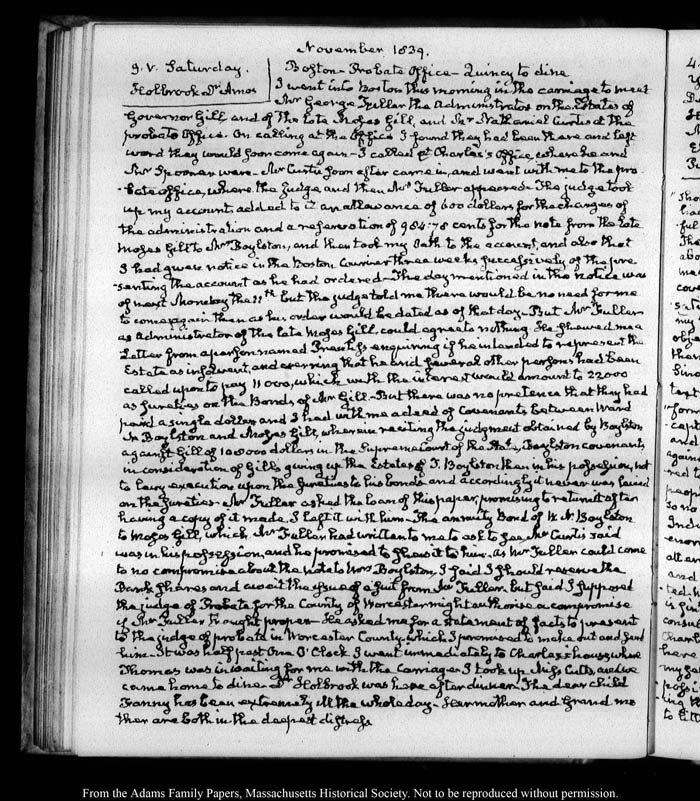 November 1839.
9. V. Saturday.
Holbrook Dr Amos
Boston - Probate Office - Quincy to dine
I went into Boston this morning in the carriage to meet
Mr George Fuller the Administrator on the Estates of
Governor Gill and of the late Moses Gill, and Mr Nathaniel Curtis at the
probate Office. On calling at the Office I found they had been there and left
word they would soon come again - I called at Charles's Office, where he and
Mr Spooner were - Mr Curtis soon after came in, and went with me to the pro-
-bate office, where the Judge, and then Mr Fuller appeared - The judge took
up my account, added to it an allowance of 600 dollars for the charges of
the administration and a reservation of 984:78 cents for the note from the late
Moses Gill to Mrs Boylston, and then took my Oath to the account, and also that
I had given notice in the Boston Courier three weeks successively of the pre-
-senting the account as he had ordered - The day mentioned in the notice was
of next Monday the 11th but the judge told me there would be no need for me
to come again then as his order would be dated as of that day - But Mr Fuller
as Administrator of the late Moses Gill, could agree to nothing. He shewed me a
Letter from a person named Prentiss enquiring if he intended to represent the
Estate as insolvent, and averring that he and several other persons had been
called upon to pay 11000, which with the interest would amount to 22000
as sureties on the Bonds of Mr Gill - But there was no pretence that they had
paid a single dollar and I had with me a deed of Covenants between Ward
N. Boylston and Moses Gill, wherein reciting the judgment obtained by Boylston
against Gill of 100000 dollars in the Supreme Court of the State, Boylston covenants
in consideration of Gills giving up the Estate of T. Boylston then in his possession, not
to levy execution upon the sureties to his bonds and accordingly it never was levied
on the sureties - Mr Fuller asked the loan of this paper, promising to return it after
having a copy of it made. I left it with him - The annuity Bond of W. N. Boylston
to Moses Gill, which Mr Fuller had written to me to ask to see, Mr Curtis said
was in his possession, and he promised to shew it to him. as Mr Fuller could come
to no compromise about the note to Mrs Boylston, I said I should reserve the
Bank shares and await the issue of a suit from Mr Fuller. but said I supposed
the judge of Probate for the County of Worcester might authorise a compromise
if Mr Fuller thought proper - He asked me for a statement of facts to present
to the judge of probate in Worcester County - which I promised to make out and send
him - It was half past One O'Clock I went immediately to Charles's house, where
Thomas was in waiting for me with the Carriage. I took up Miss Cutts, and we
came home to dine. Dr Holbrook was here after dinner. The dear child
Fanny has been extremely ill the whole day - Her mother and Grand mo-
ther are both in the deepest distress
From the Adams Family Papers, Massachusetts Historical Society. Not to be reproduced without permission.